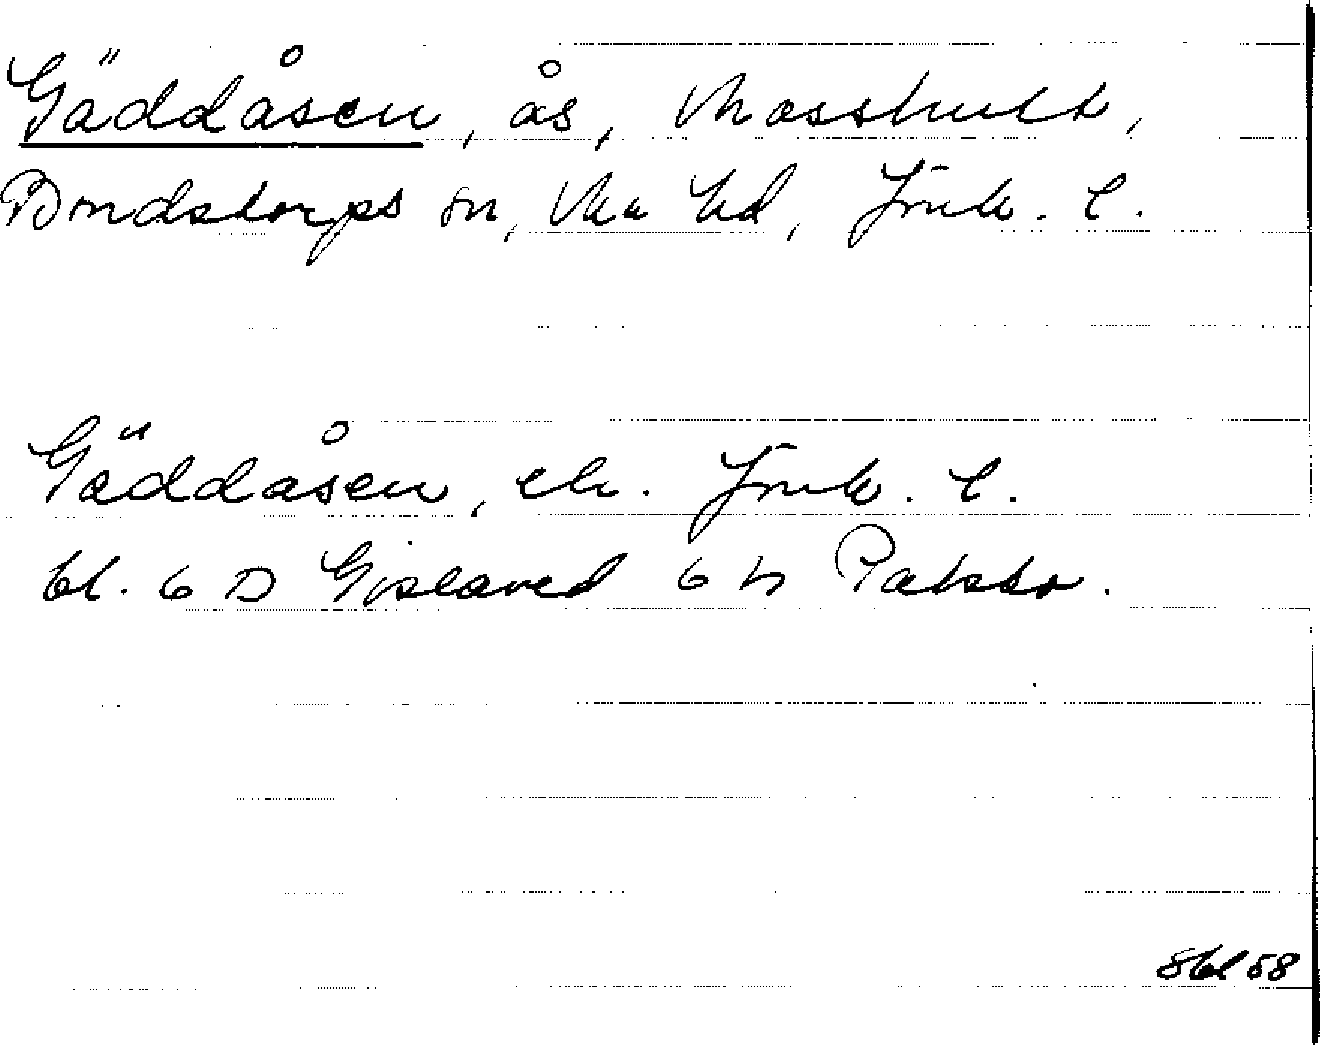 Gäddåsen, ås, Mosshult,
Bondstorps sn, Mo hd, Jönk. l.
Gäddåsen, ek. Jönk. l.
bl. 6 D Gislaved 6 h
8bl 58